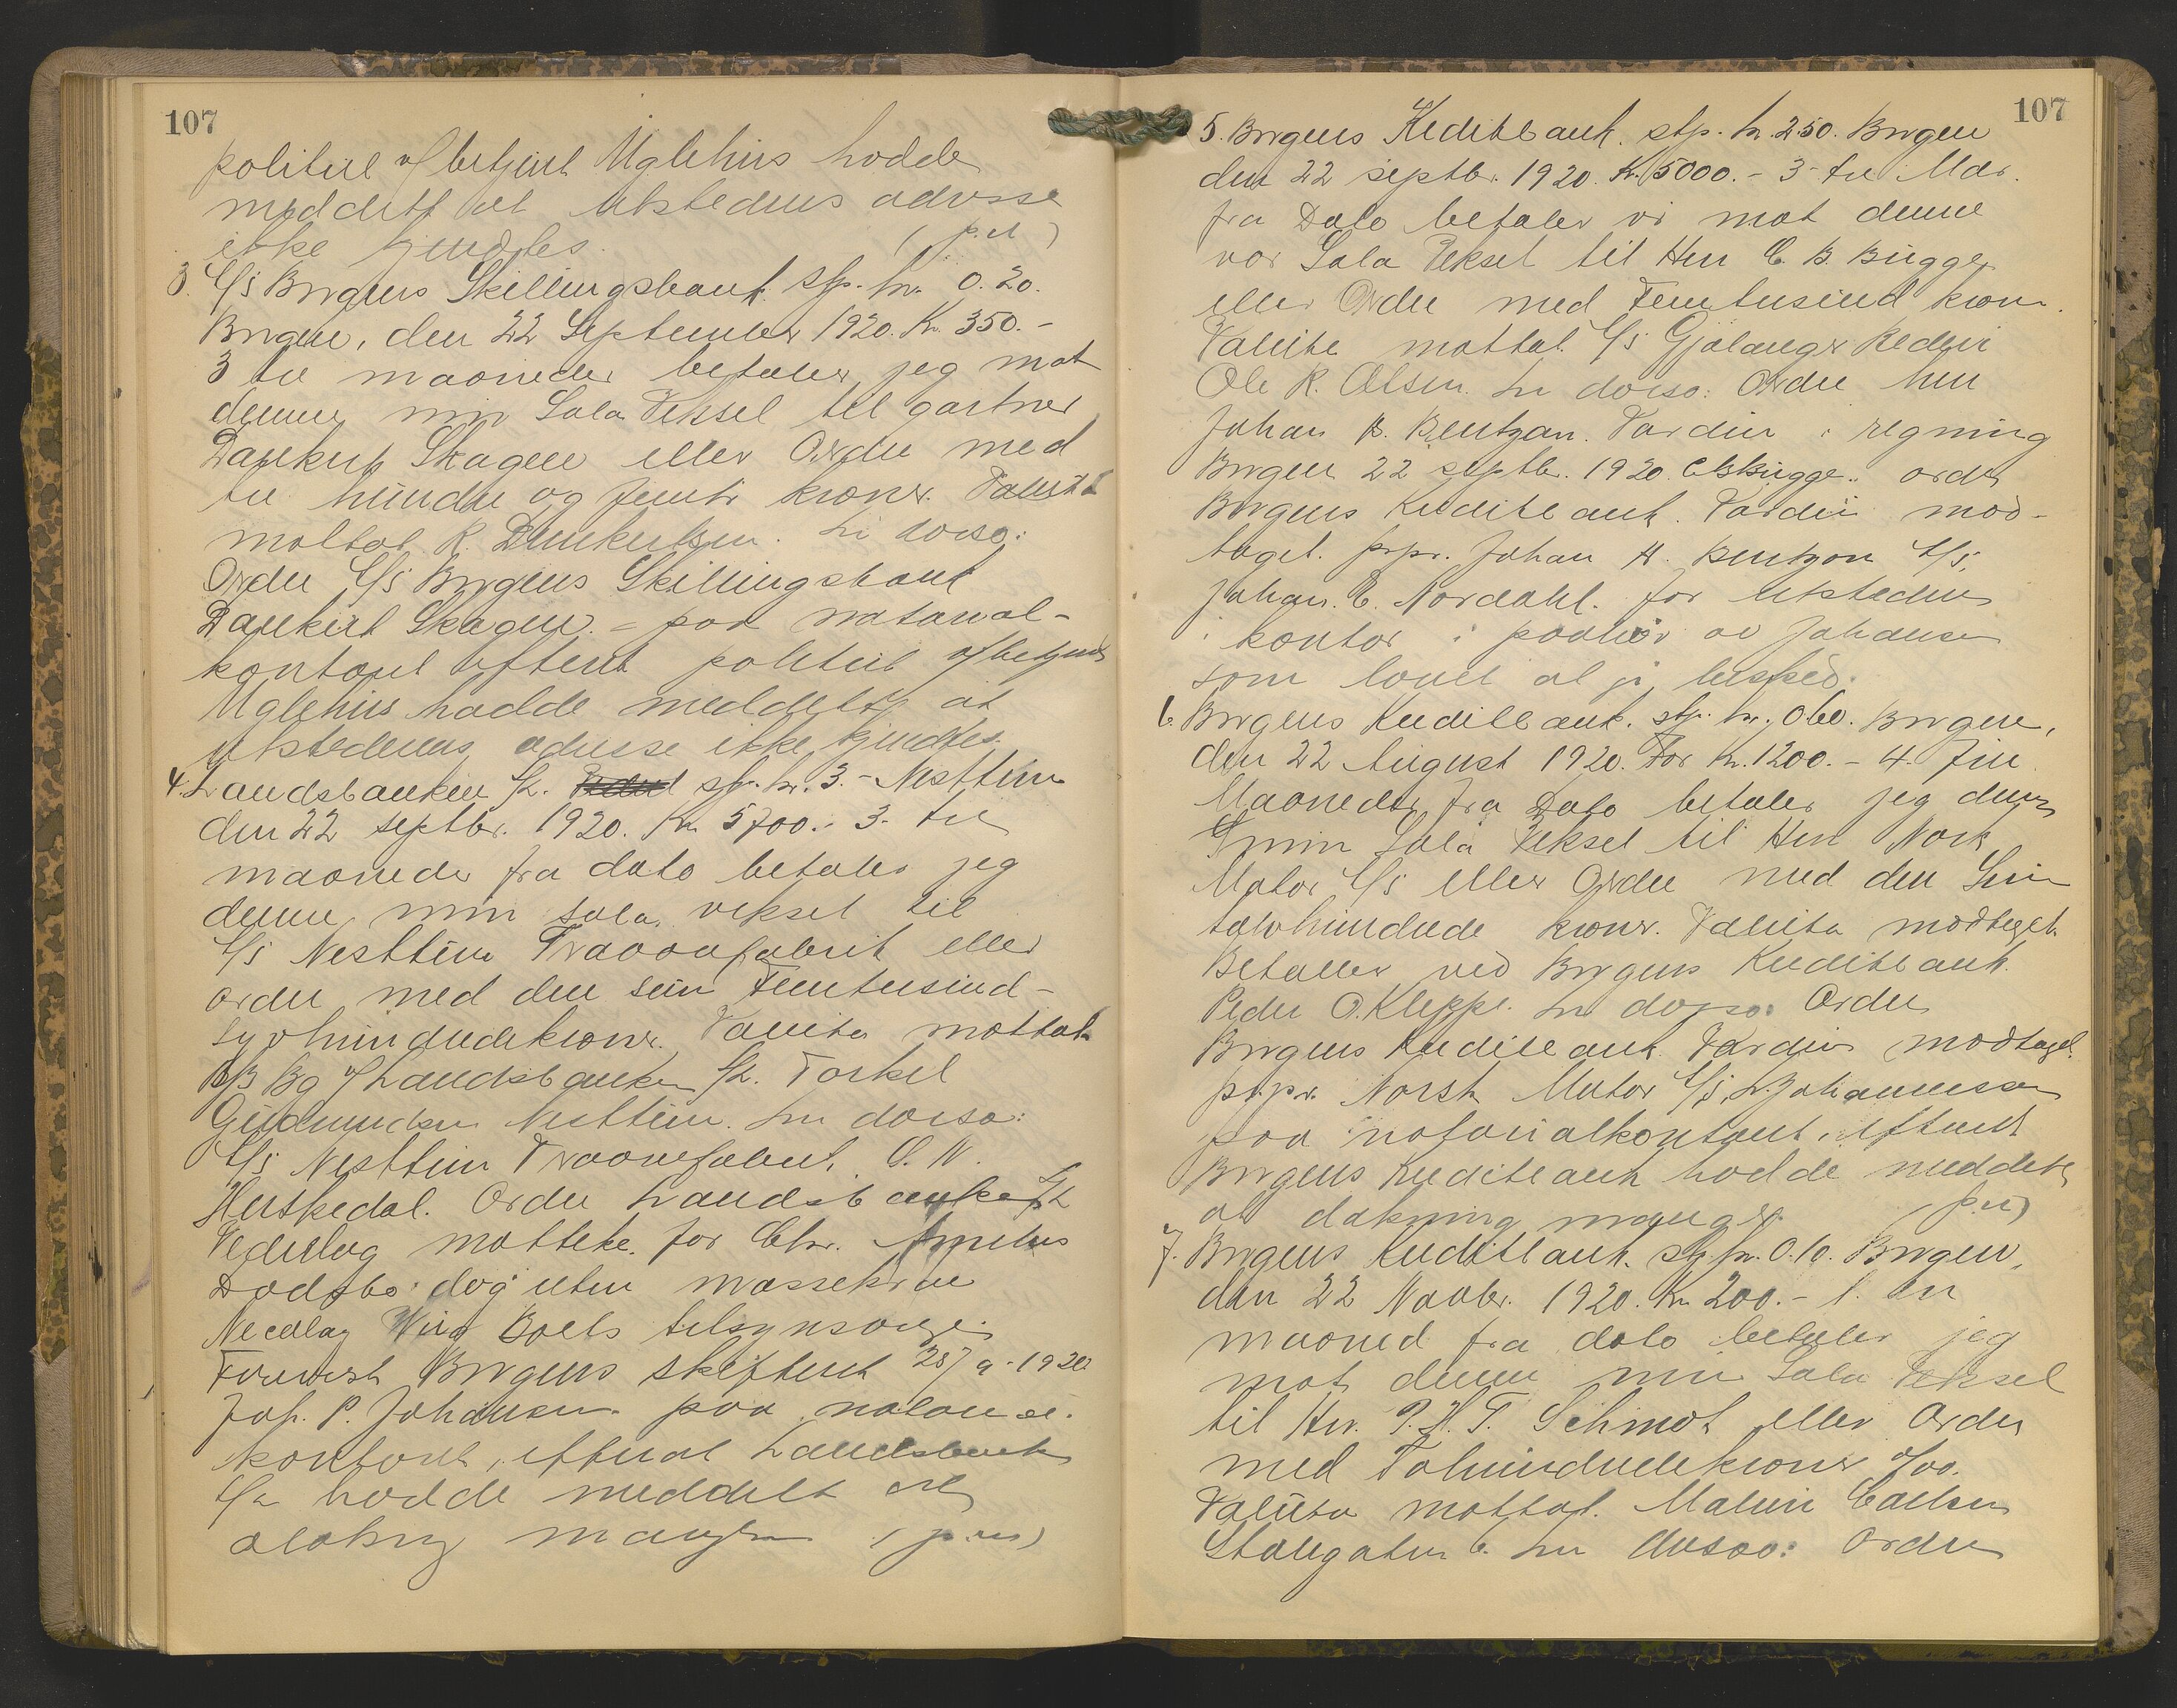 107
politiet v/betjent Uglehus hadde
meddelt at utstederens adresse
ikke kjendtes. (p.n)
3. A/S Bergens Skillingsbank stp. kr. 0.20.
Bergen, den 22 September 1920. Kr. 350.-
3 tre maaneder betaler jeg mot
denne min Sola Veksel til gartner
Skagen eller Ordre med
tre hundre og femti kroner. Valuta
mottat R. Dunkertsen. In dorso:
Ordre A/S Bergens Skillingsbank
Skagen. - paa notarial-
kontoret efterat politiet v/betjent
Uglehus hadde meddelt at
utstederens adresse ikke kjendtes.
4. Landsbanken A/L. stp. kr. 3.- Nesttun
den 22 septbr. 1920. Kr 5700.- 3- tre
maaneder fra dato betaler jeg
denne min sola veksel til
A/S Nesttun Traavarefabrik eller
ordre med den sum Femtusind-
syvhundredekroner. Valuta mottat
Bg v/Landsbanken A/L. Torkel
Gudmundsen Nesttun. In dorso:
A/S Nesttun Traavarefabrik. O. W.
Herskedal. Ordre Landsbanken A/L
Vederlag mottat. for Chr.
Dødsbo: dog uten
Nicolay Boels
Forevist Bergens skifteret 28/9-1920
Joh. P. Johansen. paa notarial-
kontoret, efterat Landsbank
A/L hadde meddelt at
dækning mangler (p.n)
107
5. Bergens Kreditbank. stp. kr. 2.50. Bergen
den 22 septbr. 1920. Kr. 5000.- 3- tre Mdr.
fra Dato betaler vi mot denne
vor Sola Veksel til Herr C. B. Bugge
eller Ordre med Femtusind kroner.
Valuta mottat. A/S Gjølanger Rederi
Ole R. Olsen. In dorso: Ordre herr
Johan B. Bentzon. Værdien i regning
Bergen 22 septbr. 1920. CBBugge. ordre
Bergens Kreditbank. Værdien mod-
taget. pr.pr. Johan B. Bentzon A/S.
Johan. E. Nordahl. for utstederens
kontor i paahør av Johansen
som lovet at gi besked.
6. Bergens Kreditbank. stp. kr. 0.60. Bergen,
den 22 August 1920. For Kr. 1200.- 4. Fire
Maaneder fra Dato betaler jeg denne
min Sola Veksel til Herr Norsk
Motor A/S eller Ordre med den Sum
tolvhundrede kroner. Valuta modtaget.
Betales ved Bergens Kreditbank.
Peder O. Kleppe. In dorso: Ordre
Bergens Kreditbank. Værdien modtaget.
pr.pr. Norsk Motor A/S. Johannessen
paa notarialkontoret, efterat
Bergens Kreditbank hadde meddelt
at dækning mangler. (p.n)
7. Bergens Kreditbank. stp. kr. 0.10. Bergen,
den 22 Novbr. 1920. Kr 200.- 1. en
maaned fra dato betaler jeg
mot denne min Sola Veksel
til Hr. P. H. T. Schmidt eller Ordre
med Tohundredekroner 0/00.
Valuta mottat.
6. In dorso: Ordre